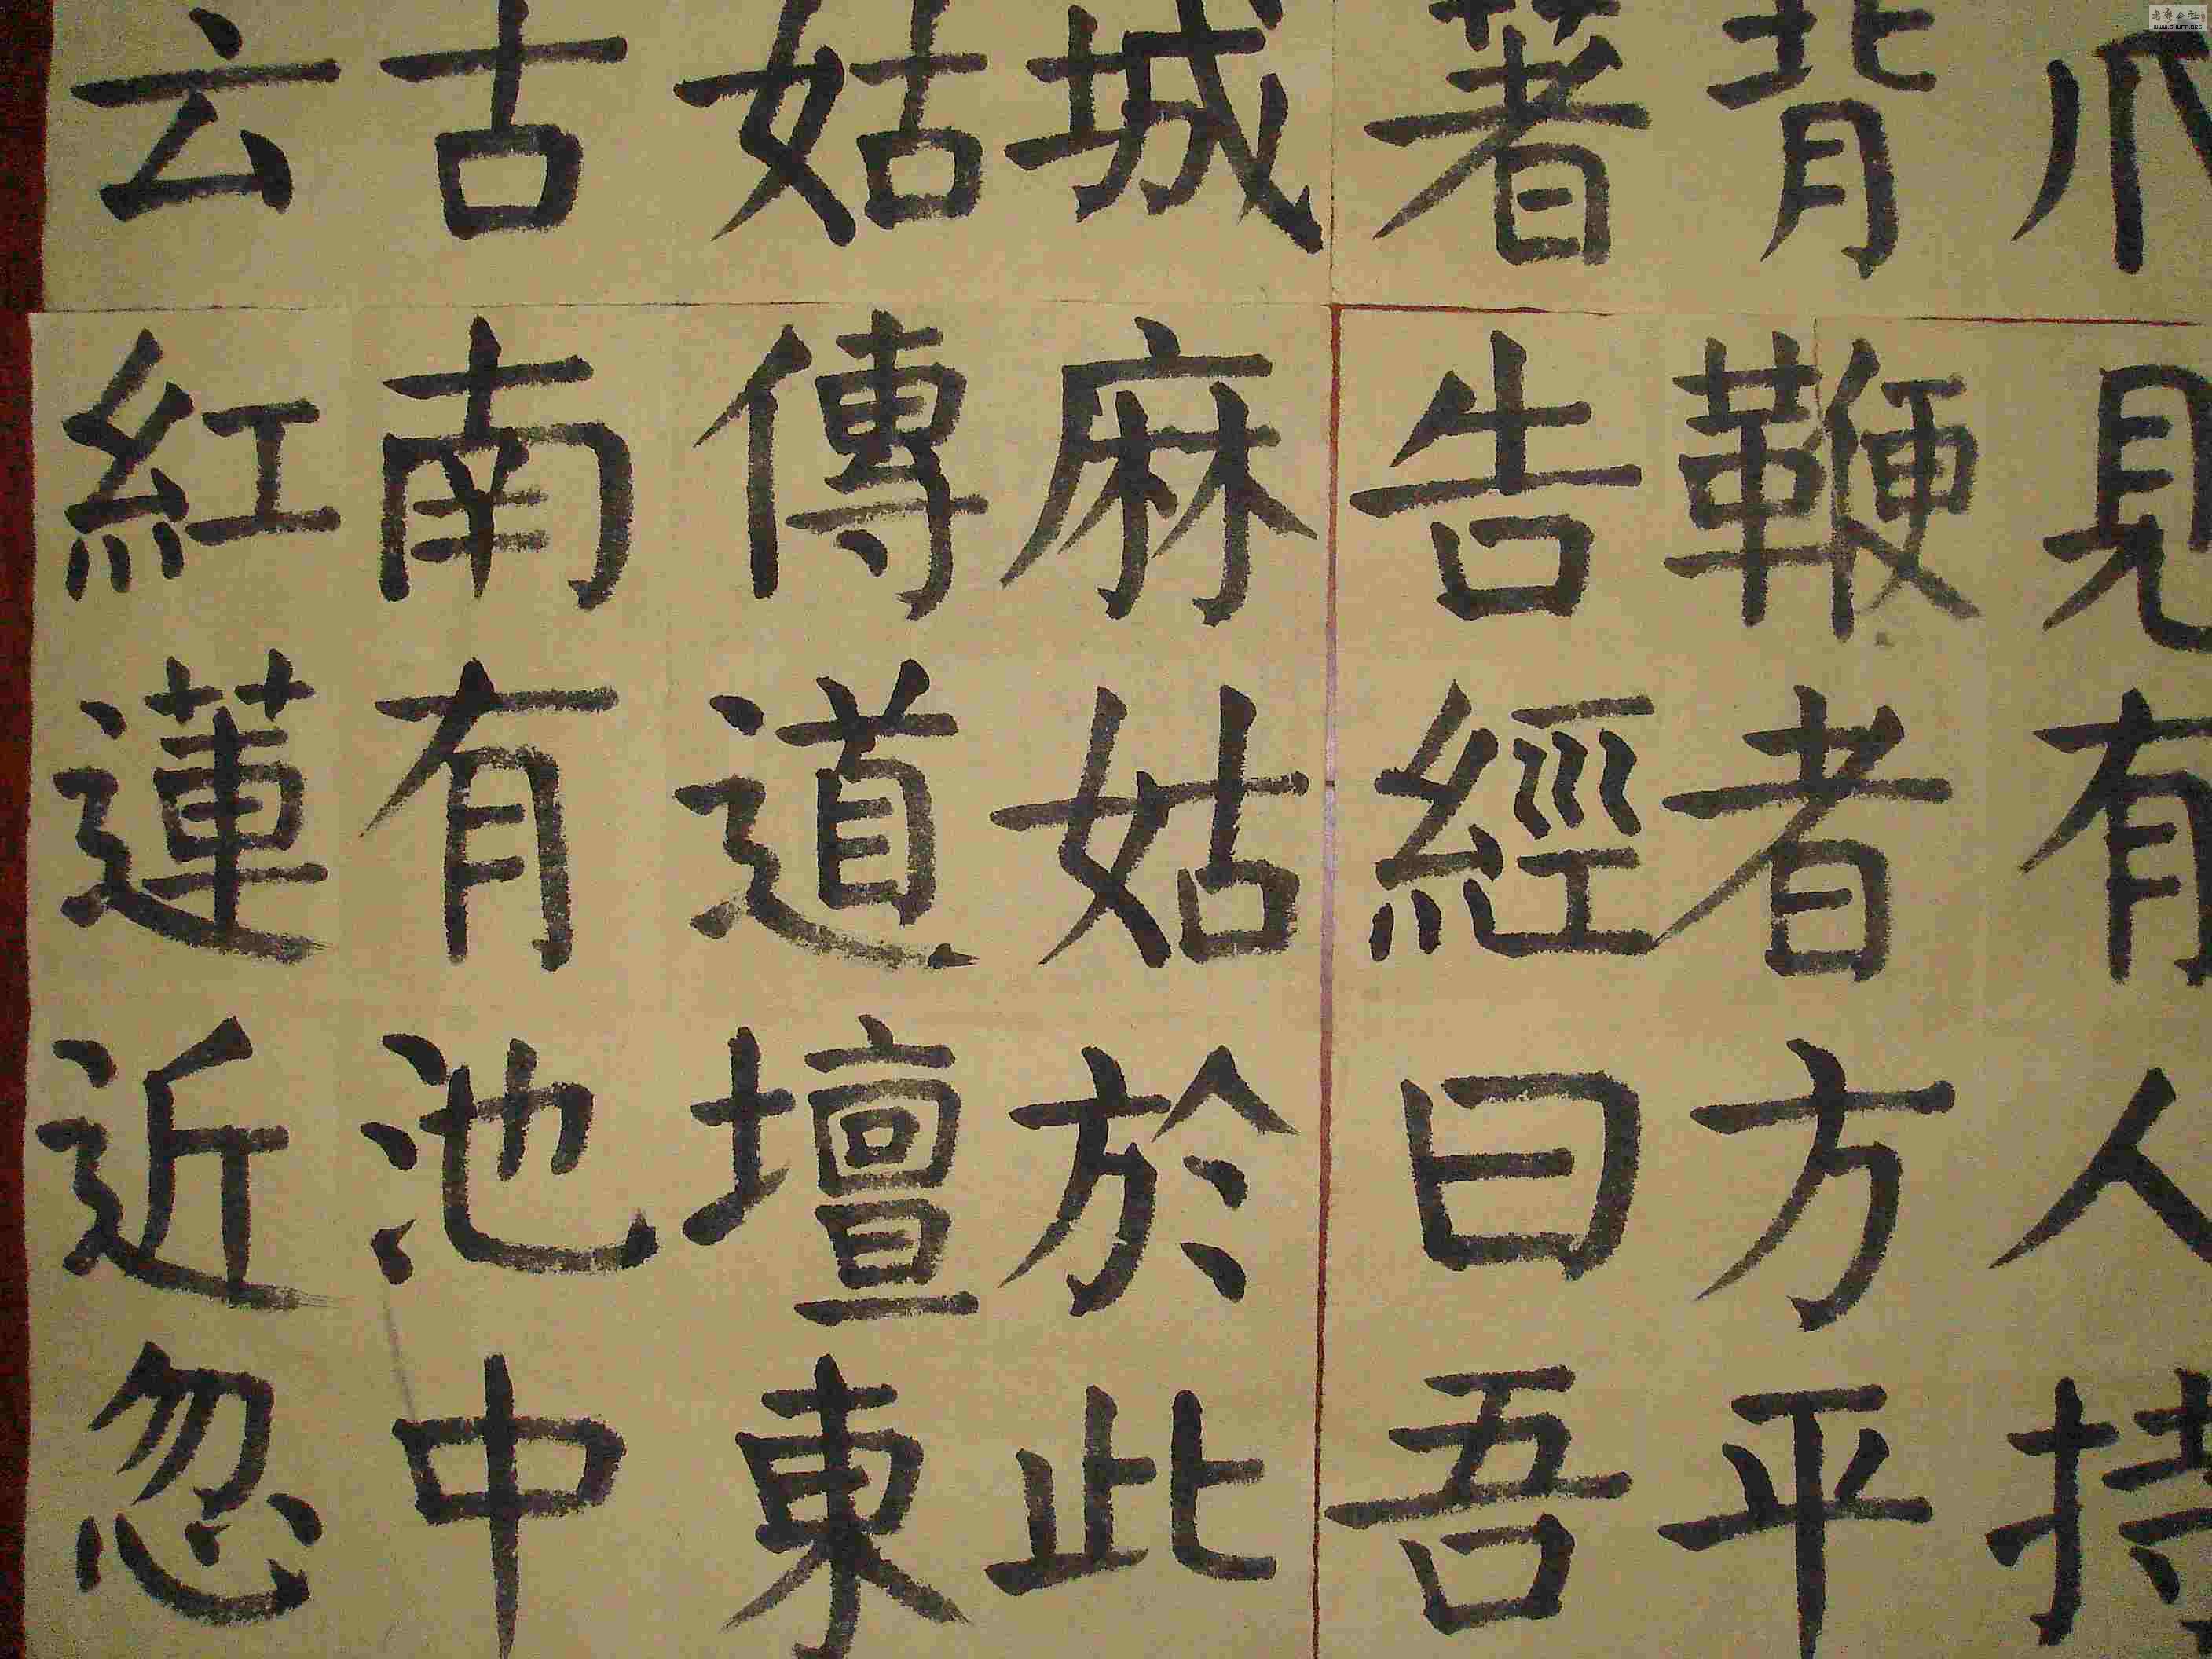 爪見有人持
背鞭者方平
著告經曰吾
城麻姑於此
姑傳道壇東
古南有池中
云紅蓮近忽